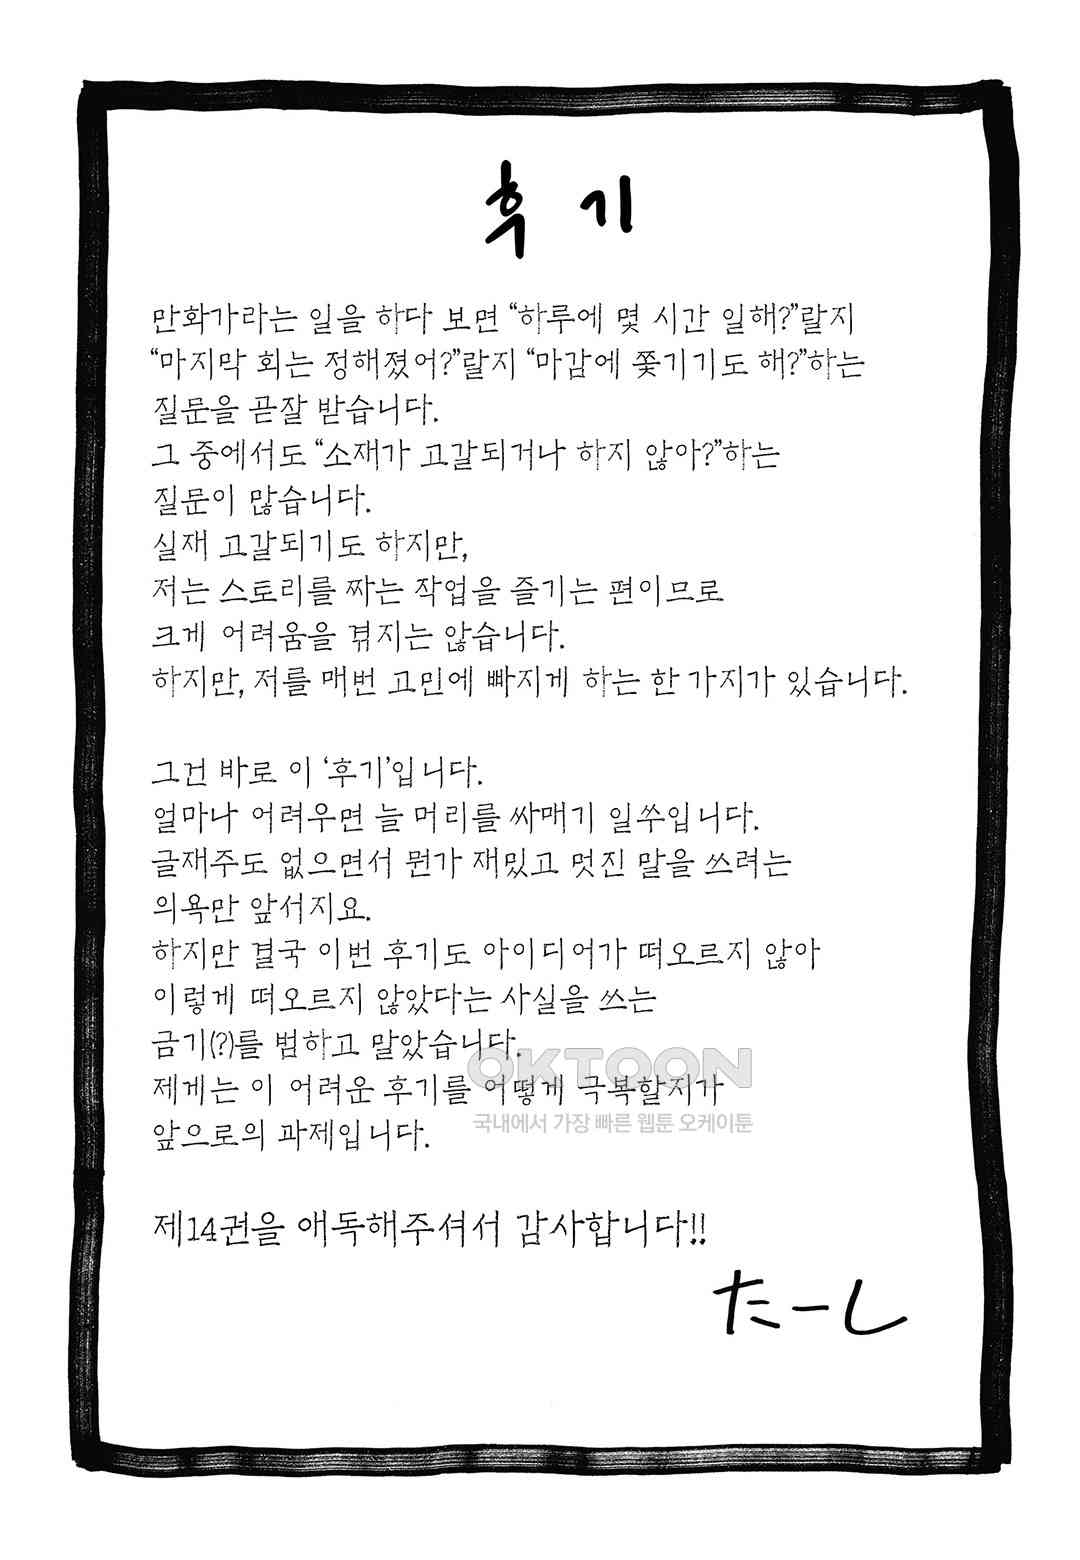 후기
만화가라는 일을 하다 보면 “하루에 몇 시간 일해?”랄지
“마지막 회는 정해졌어?”랄지 “마감에 쫓기기도 해?”하는
질문을 곧잘 받습니다.
그 중에서도 “소재가 고갈되거나 하지 않아?”하는
질문이 많습니다.
실재 고갈되기도 하지만,
저는 스토리를 짜는 작업을 즐기는 편이므로
크게 어려움을 겪지는 않습니다.
하지만, 저를 매번 고민에 빠지게 하는 한 가지가 있습니다.
그건 바로 이 ‘후기’입니다.
얼마나 어려우면 늘 머리를 싸매기 일쑤입니다.
글재주도 없으면서 뭔가 재밌고 멋진 말을 쓰려는
의욕만 앞서지요.
하지만 결국 이번 후기도 아이디어가 떠오르지 않아
이렇게 떠오르지 않았다는 사실을 쓰는
금기(?)를 범하고 말았습니다.
OKTOON
제게는 이 어려운 후기를 어떻게 극복할지가
국내에서 가장 빠른 웹툰 오케이툰
앞으로의 과제입니다.
제14권을 애독해주셔서 감사합니다!!
たーし